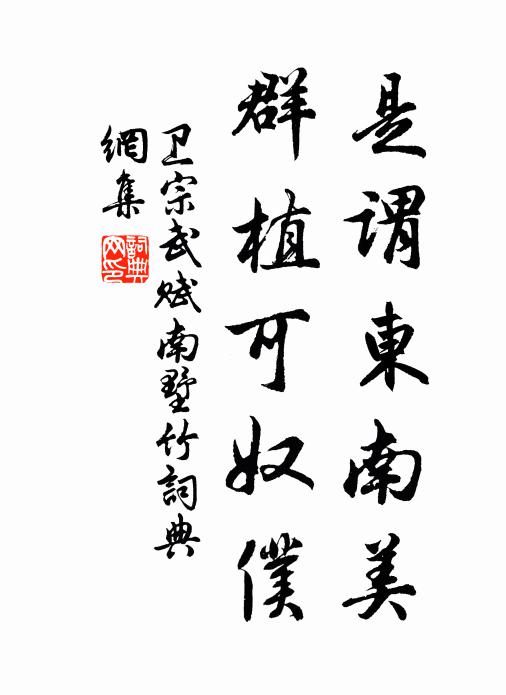 是谓東南美
群植可奴僕
卫宗武赋南墅竹詞典
網集
詞典網印